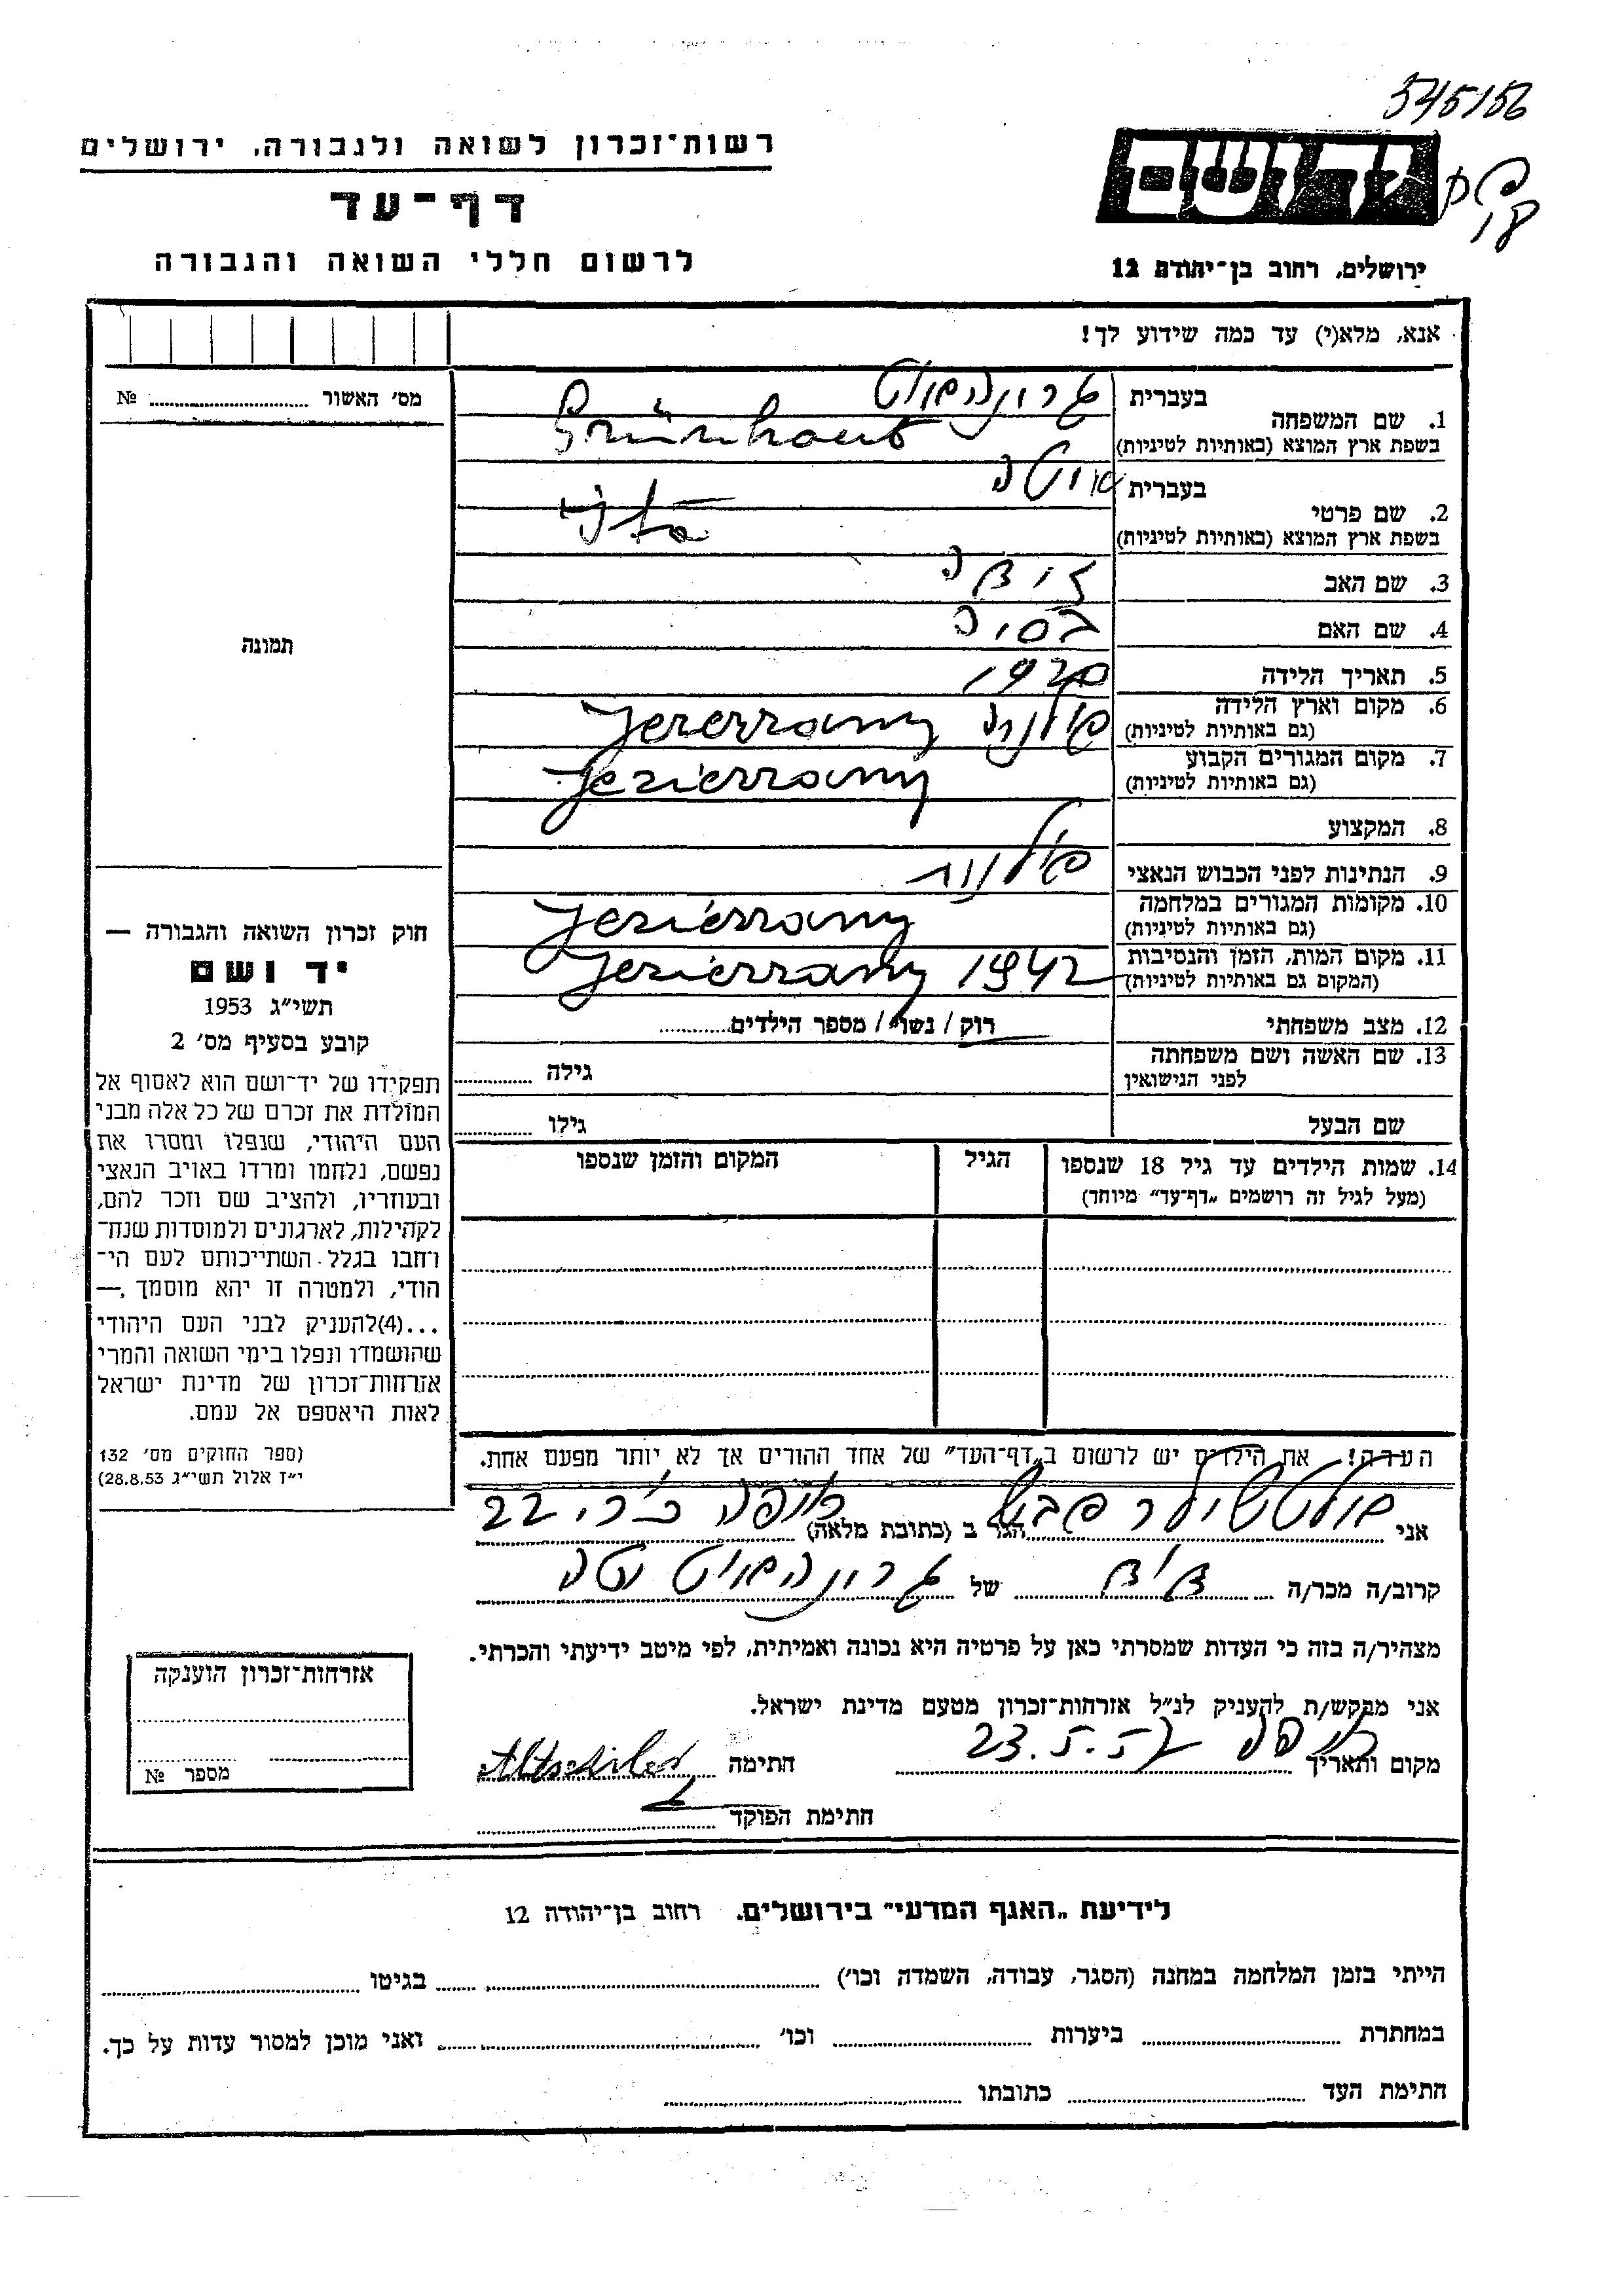 545156
רשות־זכרון לשואה ולגבורה. ירושלים
יד ושם
דף־עד
לרשום חללי השואה והגבורה
ירושלים, רחוב בן־יהודה 12
אנא, מלא(י) עד כמה שידוע לך!
מס׳ האשור № ..........
תמונה
1. שם המשפחה
בעברית גרונהאוט
בשפת ארץ המוצא (באותיות לטיניות) Grünhaut
2. שם פרטי
בעברית איטה
בשפת ארץ המוצא (באותיות לטיניות) Jta
3. שם האב
4. שם האם בסיה
5. תאריך הלידה 1920
6. מקום וארץ הלידה פולניה Jezierzany
(גם באותיות לטיניות)
7. מקום המגורים הקבוע Jezierzany
(גם באותיות לטיניות)
8. המקצוע
9. הנתינות לפני הכבוש הנאצי פולנית
10. מקומות המגורים במלחמה Jezierzany
(גם באותיות לטיניות)
11. מקום המות, הזמן והנסיבות Jezierzany 1942
(המקום גם באותיות לטיניות)
12. מצב משפחתי רוק / נשוי / מספר הילדים..........
13. שם האשה ושם משפחתה גילה ..........
לפני הנישואין
שם הבעל גילו ..........
14. שמות הילדים עד גיל 18 שנספו הגיל המקום והזמן שנספו
(מעל לגיל זה רושמים „דף־עד״ מיוחד)
חוק זכרון השואה והגבורה —
יד ושם
תשי״ג 1953
קובע בסעיף מס׳ 2
תפקידו של יד־ושם הוא לאסוף אל
המולדת את זכרם של כל אלה מבני
העם היהודי, שנפלו ומסרו את
נפשם, נלחמו ומרדו באויב הנאצי
ובעוזריו, ולהציב שם וזכר להם,
לקהילות, לארגונים ולמוסדות שנח־
רחבו בגלל השתייכותם לעם הי־
הודי, ולמטרה זו יהא מוסמך —
...(4)להעניק לבני העם היהודי
שהושמדו ונפלו בימי השואה והמרי
אזרחות־זכרון של מדינת ישראל
לאות היאספם אל עמם.
(ספר החוקים מס׳ 132
י״ז אלול תשי״ג 28.8.53)
הערה! את הילדים יש לרשום ב„דף־העד״ של אחד ההורים אך לא יותר מפעם אחת.
אני אלטשילר הגר ב (כתובת מלאה) חיפה 22
קרוב/ה מכר/ה של גרונהאוט יטה
מצהיר/ה בזה כי העדות שמסרתי כאן על פרטיה היא נכונה ואמיתית, לפי מיטב ידיעתי והכרתי.
אני מבקש/ת להעניק לנ״ל אזרחות־זכרון מטעם מדינת ישראל.
מקום ותאריך חיפה 23.5.57 חתימה Altschiler
חתימת הפוקד
אזרחות־זכרון הוענקה
מספר №
לידיעת „האגף המדעי״ בירושלים. רחוב בן־יהודה 12
הייתי בזמן המלחמה במחנה (הסגר, עבודה, השמדה וכו׳) .......... בגיטו ..........
במחתרת .......... ביערות .......... וכו׳ .......... ואני מוכן למסור עדות על כך.
חתימת העד .......... כתובתו ..........